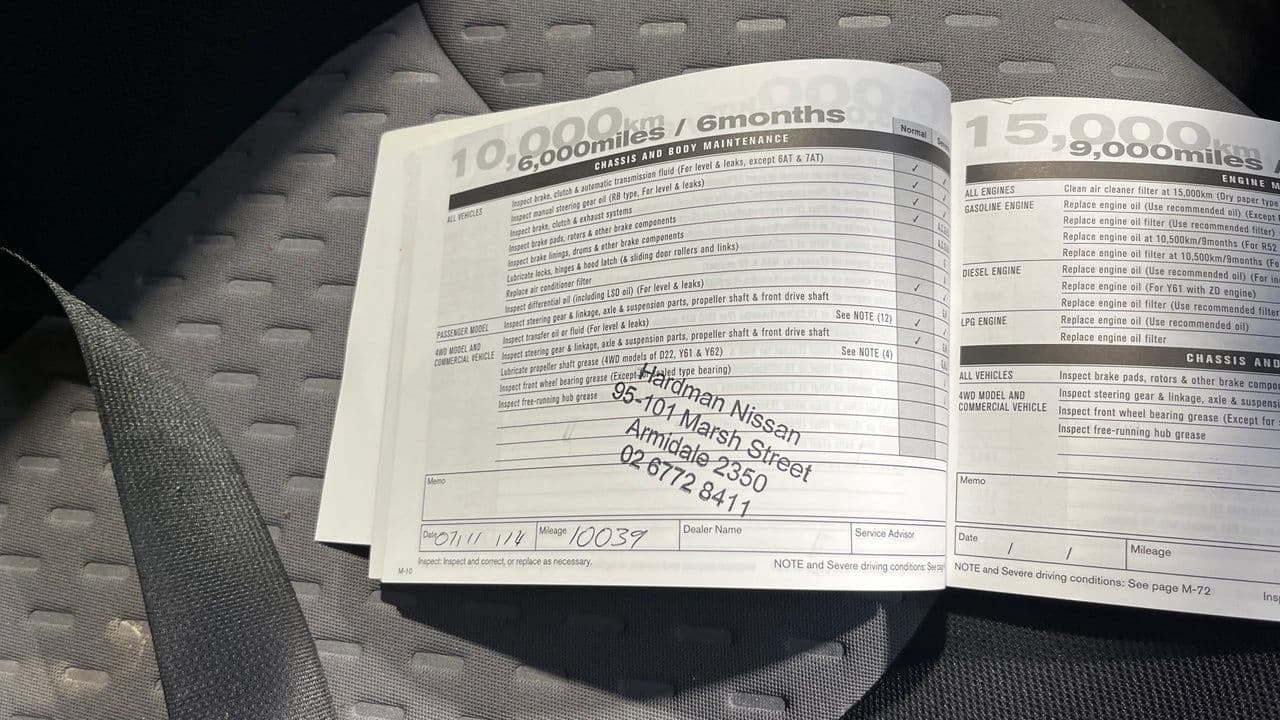 10,000km
6,000miles / 6months
Normal
CHASSIS AND BODY MAINTENANCE
ALL VEHICLES
Inspect brake, clutch & automatic transmission fluid (For level & leaks, except 6AT & 7AT)
Inspect manual steering gear oil (RB type, For level & leaks)
Inspect brake, clutch & exhaust systems
Inspect brake pads, rotors & other brake components
Inspect brake linings, drums & other brake components
Lubricate locks, hinges & hood latch (& sliding door rollers and links)
Replace air conditioner filter
Inspect differential oil (including LSD oil) (For level & leaks)
PASSENGER MODEL
Inspect steering gear & linkage, axle & suspension parts, propeller shaft & front drive shaft
4WD MODEL AND
COMMERCIAL VEHICLE
Inspect transfer oil or fluid (For level & leaks) See NOTE (12)
Inspect steering gear & linkage, axle & suspension parts, propeller shaft & front drive shaft
Lubricate propeller shaft grease (4WD models of D22, Y61 & Y62) See NOTE (4)
Inspect front wheel bearing grease (Except for sealed type bearing)
Inspect free-running hub grease
Hardman Nissan
95-101 Marsh Street
Armidale 2350
02 6772 8411
Memo
Date 07/11/14 Mileage 10039 Dealer Name Service Advisor
M-10 Inspect: Inspect and correct, or replace as necessary.
NOTE and Severe driving conditions: See
15,000km
9,000miles /
ENGINE
ALL ENGINES Clean air cleaner filter at 15,000km (Dry paper type
GASOLINE ENGINE Replace engine oil (Use recommended oil) (Except
Replace engine oil filter (Use recommended filter)
Replace engine oil at 10,500km/9months (For R52
Replace engine oil filter at 10,500km/9months (Fo
DIESEL ENGINE Replace engine oil (Use recommended oil) (For
Replace engine oil (For Y61 with ZD engine)
Replace engine oil filter (Use recommended filter
LPG ENGINE Replace engine oil (Use recommended oil)
Replace engine oil filter
CHASSIS AND
ALL VEHICLES Inspect brake pads, rotors & other brake compo
4WD MODEL AND
COMMERCIAL VEHICLE
Inspect steering gear & linkage, axle & suspens
Inspect front wheel bearing grease (Except for
Inspect free-running hub grease
Memo
Date / / Mileage
NOTE and Severe driving conditions: See page M-72
Ins